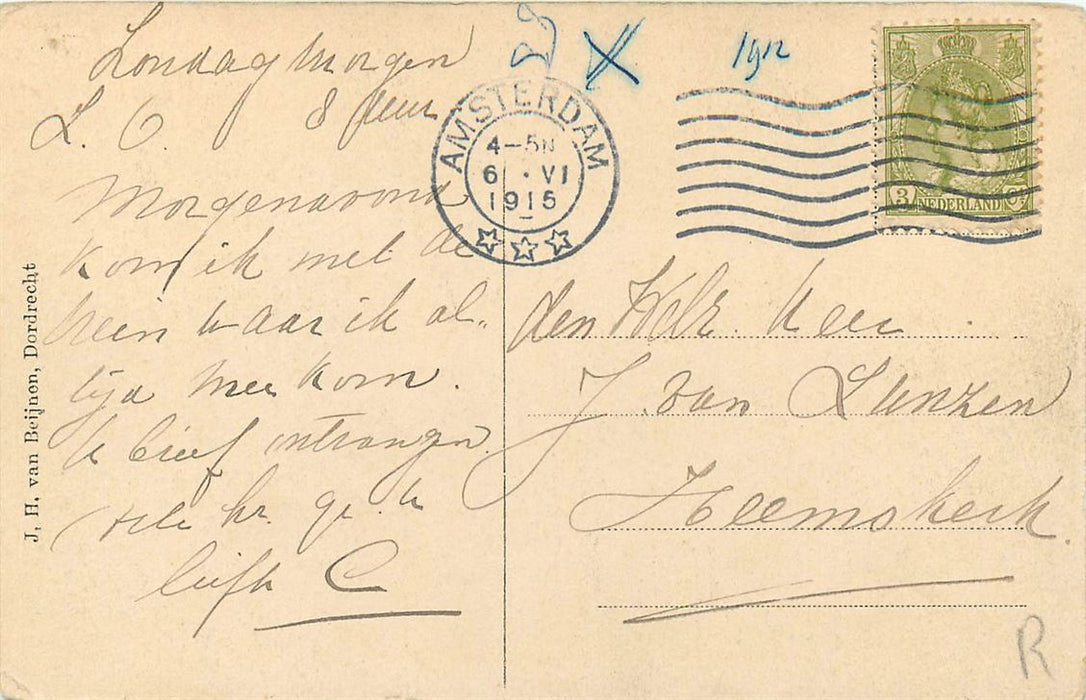 Zondag morgen
L. O. 8 uur
Morgenavond
kom ik met de
trein waar ik al„
tijd mee kom.
U brief ontvangen
hr. gr. u
liefh C
1912
AMSTERDAM
4-5N
6 . VI
1915
3 NEDERLAND
den Heer
J. van Lunzen
Heemskerk.
R
J. H. van Beijnen, Dordrecht